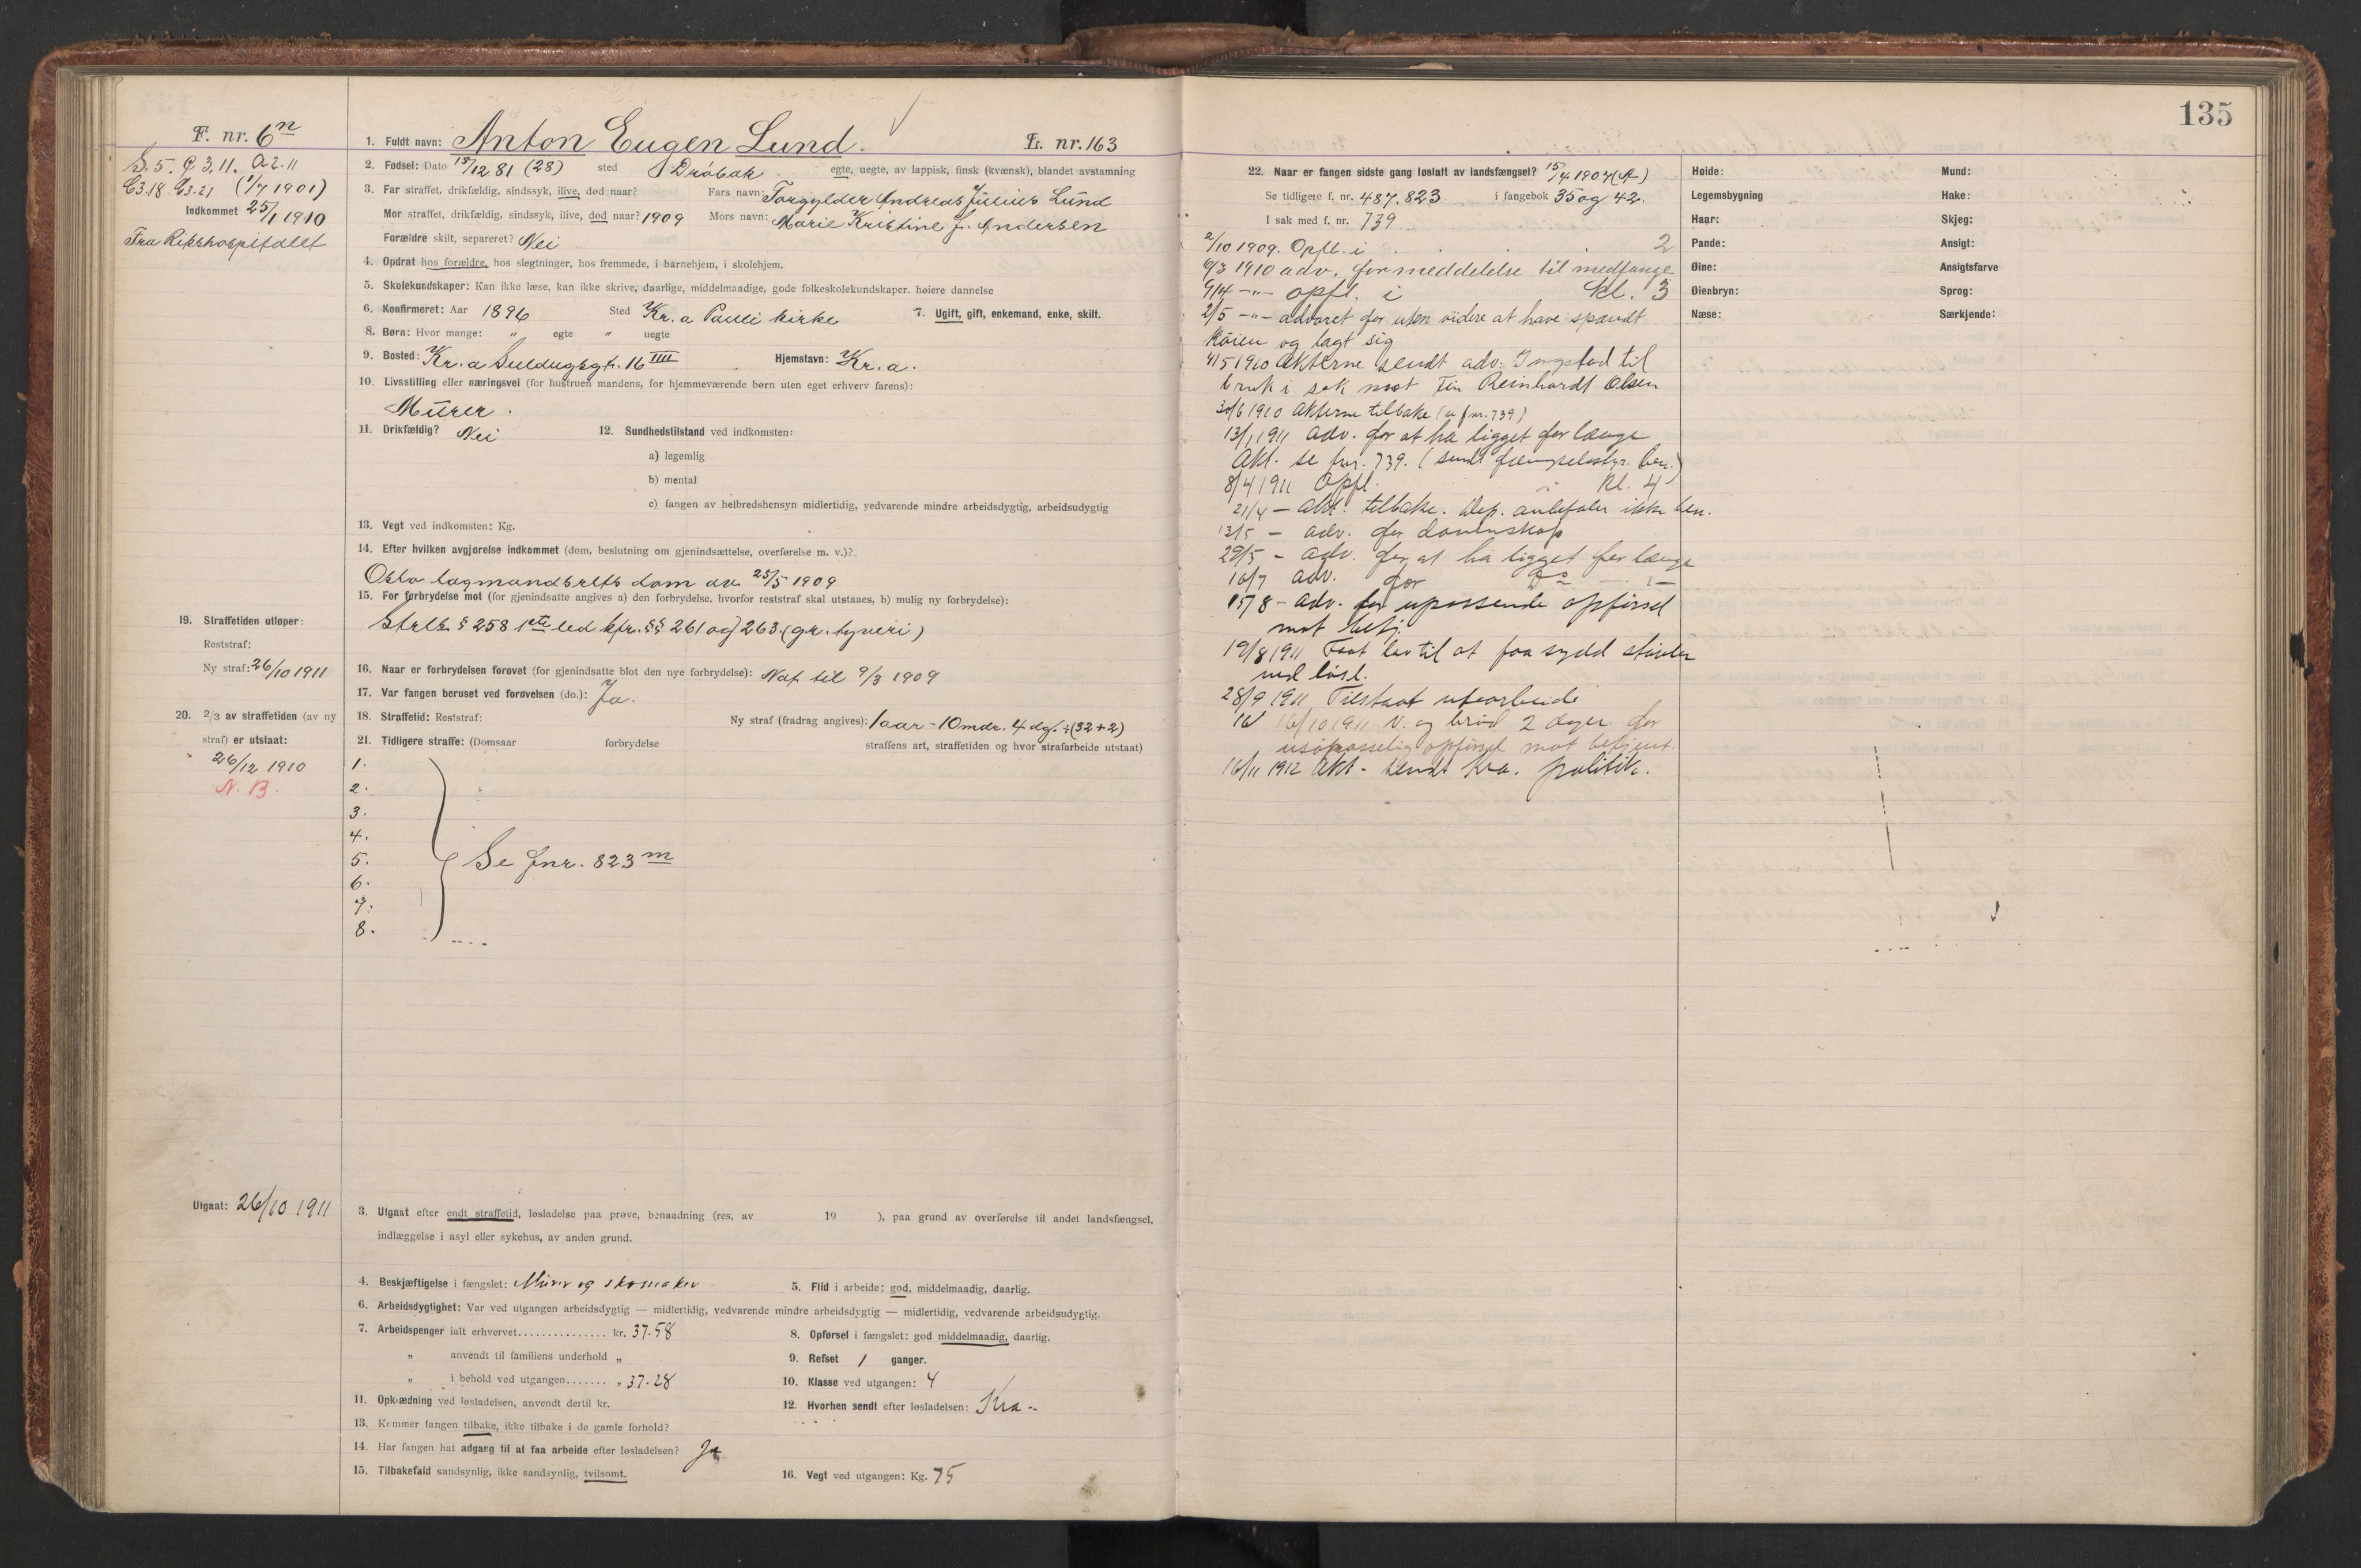 135
F. nr. 6n
S.5. C 3.11. A 2.11
C3.18 C3.21 (1/7 1901)
Indkommet 25/1 1910
Fra Rikshospitalet
1. Fuldt navn: Anton Eugen Lund. L. nr. 163
2. Fødsel: Dato 18/12 81 (28) sted Drøbak egte, uegte, av lappisk, finsk (kvænsk), blandet avstamning
3. Far straffet, drikfældig, sindssyk, ilive, død naar? Fars navn: Forgylder Andreas Julius Lund
Mor straffet, drikfældig, sindssyk, ilive, død naar? 1909 Mors navn: Marie Kristine f. Andersen
Forældre skilt, separeret? Nei
4. Opdrat hos forældre, hos slegtninger, hos fremmede, i barnehjem, i skolehjem.
5. Skolekundskaper: Kan ikke læse, kan ikke skrive, daarlige, middelmaadige, gode folkeskolekundskaper. høiere dannelse
6. Konfirmeret: Aar 1896 Sted Kr.a Pauli kirke 7. Ugift, gift, enkemand, enke, skilt.
8. Børn: Hvor mange: " egte " uegte
9. Bosted: Kr.a 16 IIII Hjemstavn: Kr.a.
10. Livsstilling eller næringsvei (for hustruen mandens, for hjemmeværende børn uten eget erhverv farens):
Murer.
11. Drikfældig? Nei 12. Sundhedstilstand ved indkomsten:
a) legemlig
b) mental
c) fangen av helbredshensyn midlertidig, vedvarende mindre arbeidsdygtig, arbeidsudygtig
13. Vegt ved indkomsten: Kg.
14. Efter hvilken avgjørelse indkommet (dom, beslutning om gjenindsættelse, overførelse m. v.)?
Oslo lagmandsretts dom av 25/5 1909
15. For forbrydelse mot (for gjenindsatte angives a) den forbrydelse, hvorfor reststraf skal utstaaes, b) mulig ny forbrydelse):
Strls § 258 1ste led kfr. §§ 261 og 263. (gr. tyveri)
19. Straffetiden utløper:
Reststraf:
Ny straf: 26/10 1911
16. Naar er forbrydelsen forøvet (for gjenindsatte blot den nye forbrydelse): Nat til 9/3 1909
17. Var fangen beruset ved forøvelsen (do.): Ja.
20. 2/3 av straffetiden (av ny
straf) er utstaat:
26/12 1910
N. B.
18. Straffetid: Reststraf: Ny straf (fradrag angives): 1 aar - 10 mdr. 4 dg. ÷ (32+2)
21. Tidligere straffe: (Domsaar forbrydelse straffens art, straffetiden og hvor strafarbeide utstaat)
1.
2.
3.
4.
5. Se fnr. 823 m
6.
7.
8.
Utgaat: 26/10 1911
3. Utgaat efter endt straffetid, løsladelse paa prøve, benaadning (res. av 19 ), paa grund av overførelse til andet landsfængsel,
indlæggelse i asyl eller sykehus, av anden grund.
4. Beskjæftigelse i fængslet: Murer og skomaker 5. Flid i arbeide: god, middelmaadig, daarlig.
6. Arbeidsdygtighet: Var ved utgangen arbeidsdygtig — midlertidig, vedvarende mindre arbeidsdygtig — midlertidig, vedvarende arbeidsudygtig.
7. Arbeidspenger ialt erhvervet............... kr. 37.58 8. Opførsel i fængslet: god middelmaadig, daarlig.
" anvendt til familiens underhold " 9. Refset 1 ganger.
" i behold ved utgangen....... " 37.28 10. Klasse ved utgangen: 4
11. Opklædning ved løsladelsen, anvendt dertil kr. 12. Hvorhen sendt efter løsladelsen: Kra-
13. Kommer fangen tilbake, ikke tilbake i de gamle forhold?
14. Har fangen hat adgang til at faa arbeide efter løsladelsen? Ja
15. Tilbakefald sandsynlig, ikke sandsynlig, tvilsomt. 16. Vegt ved utgangen: Kg. 75
22. Naar er fangen sidste gang løslatt av landsfængsel? 15/4 1907 (A)
Se tidligere f. nr. 487. 823 i fangebok 35 og 42.
I sak med f. nr. 739
2/10 1909. Opfl. i 2
6/3 1910 adv. for meddelelse til medfange
9/4 -"- opfl. i kl. 3
2/5 -"- advaret for uten videre at have spændt
køien og lagt sig
4/5 1910 Akterne sendt adv. Ingstad til
bruk i sak mot Reinhardt Olsen
30/6 1910 Akterne tilbake (se fnr. 739)
13/1 1911 adv. for at ha ligget for længe
Akt. se fnr. 739. (sendt fængselsstyr. ben.)
8/4 1911 Opfl. i kl. 4
21/4 - akt. tilbake. Dep. anbefaler ikke ben.
13/5 - adv. for dovenskap
29/5 - adv. for at ha ligget for længe
10/7 adv. for Do
15/8 - adv. for upassende opførsel
mot betj.
19/8 1911 Faat lov til at faa sydd støvler
ved løsl.
28/9 1911 Tilstaat utearbeide
16/10 1911 V. og brød 2 dager for
opførsel mot betjent.
16/11 1912 Akt - sendt Kra. politik.
Høide: Mund:
Legemsbygning Hake:
Haar: Skjeg:
Pande: Ansigt:
Øine: Ansigtsfarve
Øienbryn: Sprog:
Næse: Særkjende: